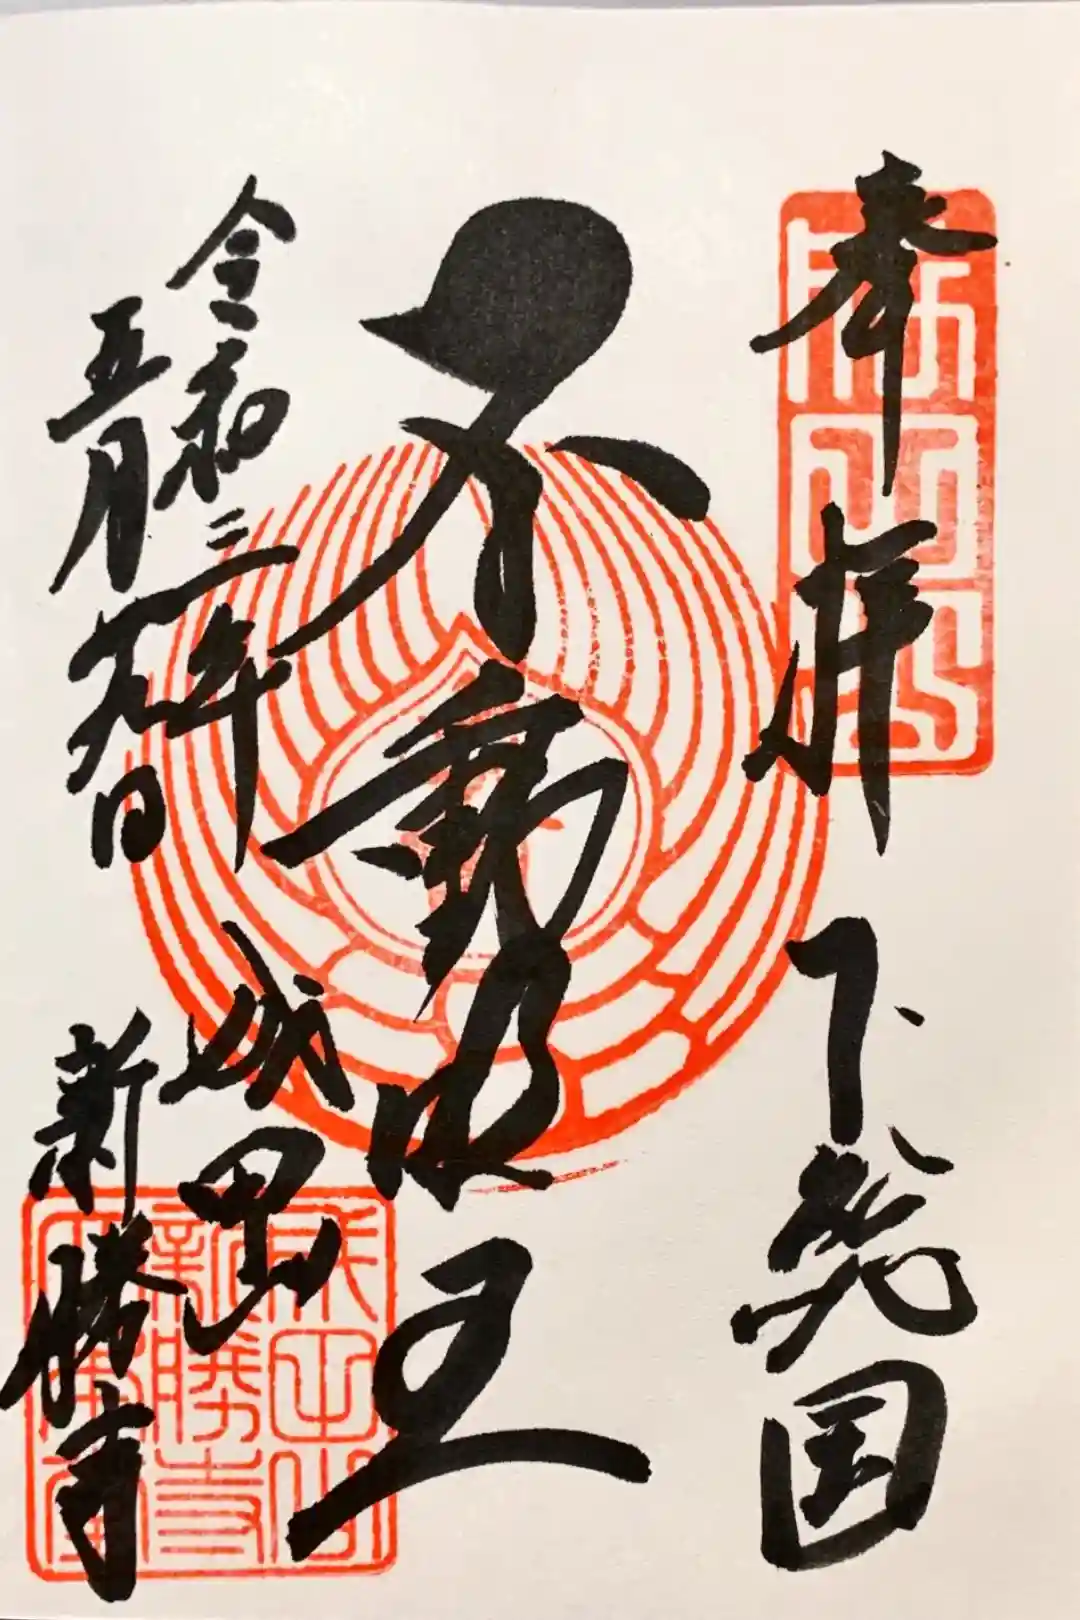 奉拝 下総国
不動明王
令和三年
五月
成田山
新勝寺
成田山
新勝寺